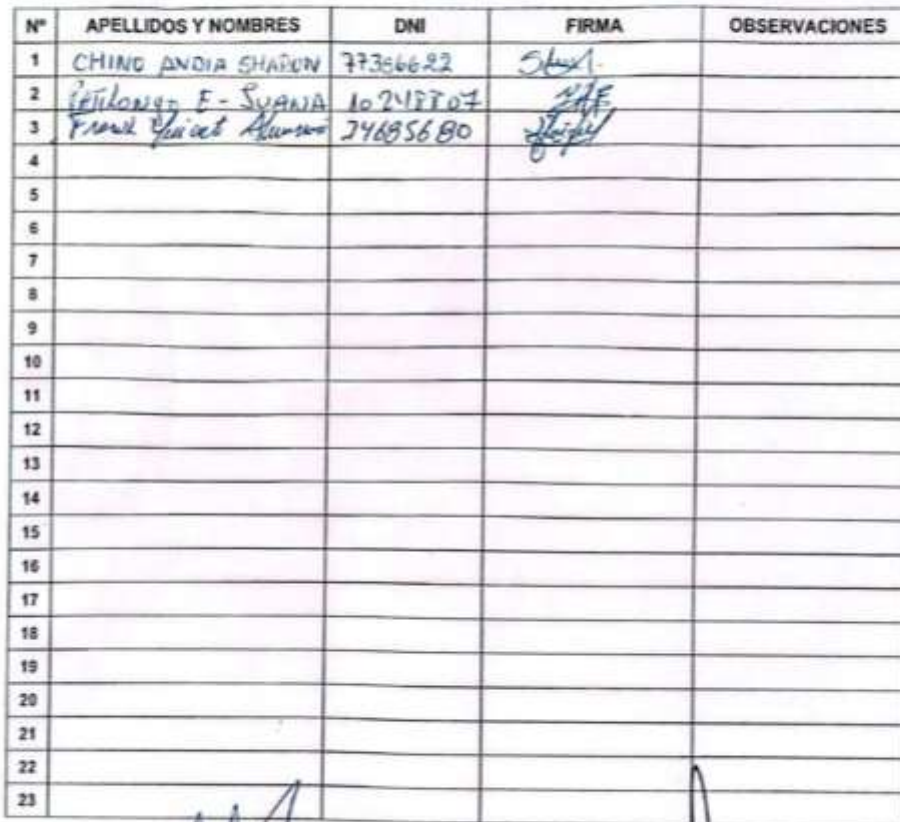 N° APELLIDOS Y NOMBRES DNI FIRMA OBSERVACIONES
1 CHINO ANDIA SHARON 77366622
2 E - SUANA
3 Frank 74685680
4
5
6
7
8
9
10
11
12
13
14
15
16
17
18
19
20
21
22
23